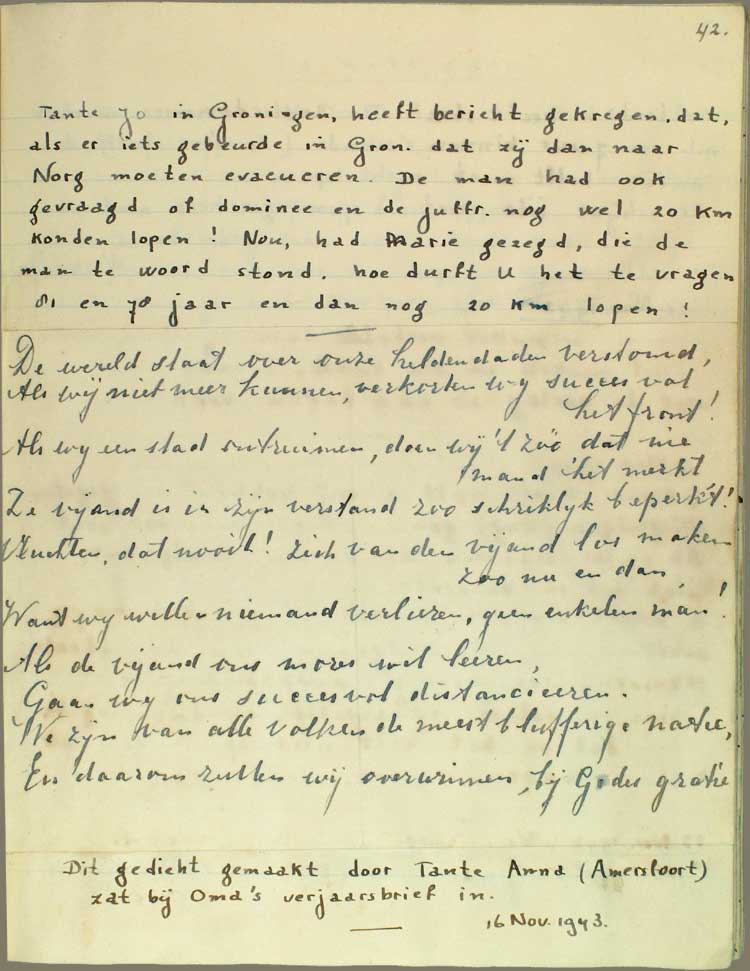 42.
Tante Jo in Groningen, heeft bericht gekregen, dat,
als er iets gebeurde in Gron. dat zij dan naar
Norg moeten evacueren. De man had ook
gevraagd of dominee en de juffr. nog wel 20 km
konden lopen! Nou, had Marie gezegd, die de
man te woord stond. hoe durft U het te vragen
81 en 78 jaar en dan nog 20 km lopen!
De wereld staat over onze heldendaden verstomd,
Als wij niet meer kunnen, verkorten wy succesvol
het front!
Als wy een stad ontruimen, doen wij 't zóó dat nie
mand 'het merkt
De vijand is in zijn verstand zoo schriklyk beperkt!
Vluchten, dat nooit! Zich van den vijand los maken
zoo nu en dan,
Want wy willen niemand verliezen, geen enkelen man!
Als de vijand ons mores wil leeren,
Gaan wy ons succesvol distancieeren.
We zijn van alle volken de meest blufferige natie,
En daarom zullen wij overwinnen, bij Gods gratie
Dit gedicht gemaakt door Tante Anna (Amersfoort)
zat bij Oma's verjaarsbrief in.
16 Nov. 1943.